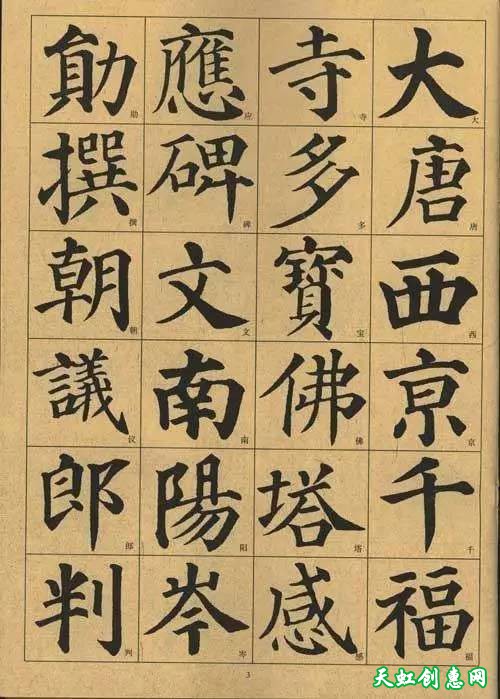 大唐西亰千福
大唐西京千福
寺多寶佛塔感
寺多宝佛塔感
應碑文南陽岑
应碑文南阳岑
勛撰朝議郎判
勋撰朝议郎判
3
天虹创惠网